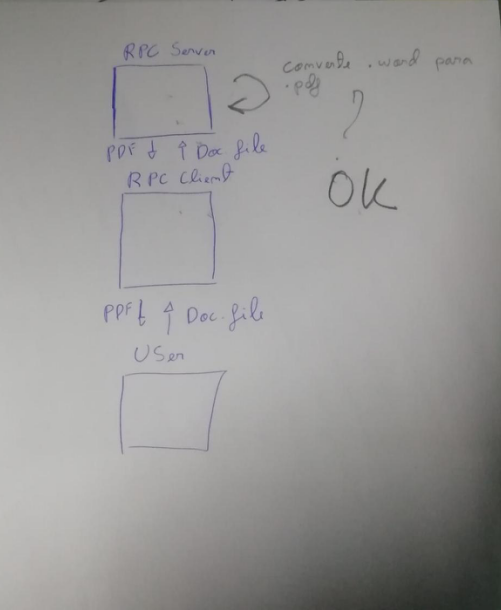 RPC Server
converte .word para
.pdf
PDF ↓ ↑ Doc file
RPC Client
OK
PDF ↓ ↑ Doc.file
USer